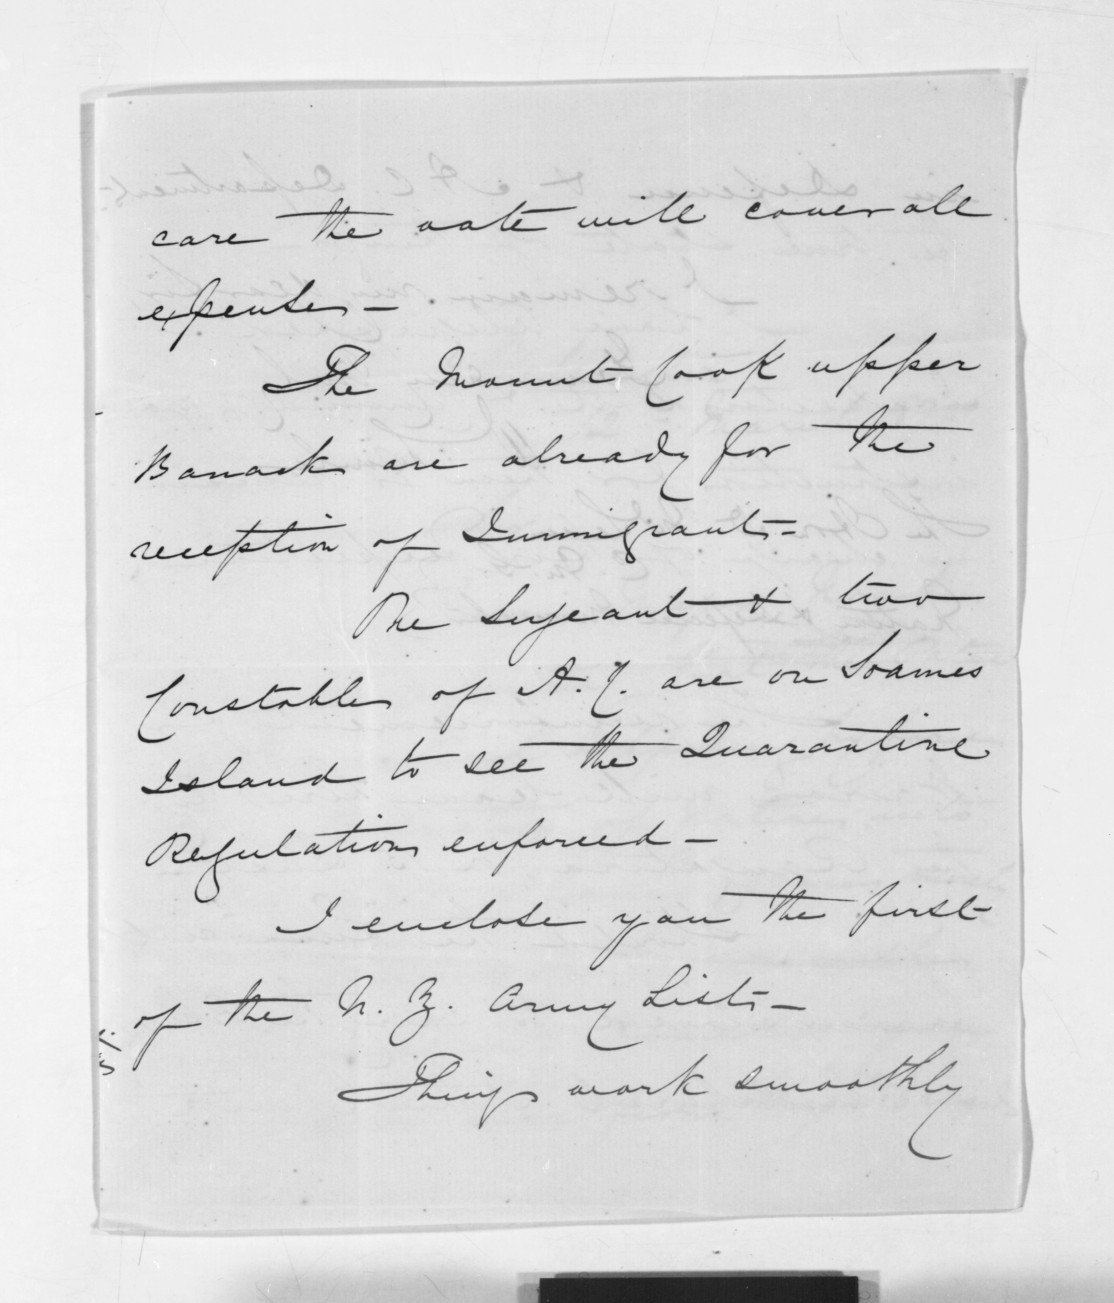 care the vote will cover all
expenses –
The Mount Cook upper
Barracks are already for the
reception of Immigrants –
The Sergeant & two
Constables of A. C. are on Soames
Island to see the Quarantine
Regulations enforced –
I enclose you the first
of the N. Z. Army Lists –
Things work smoothly